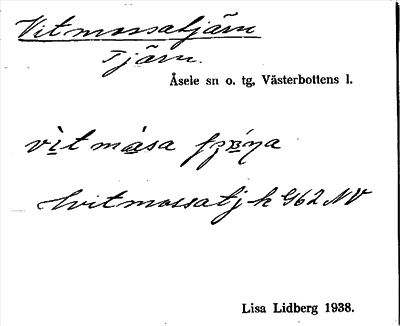 Vitmossatjärn
Tjärn.
Åsele sn o. tg, Västerbottens l.
vìt måsa
Hvitmossatj k G62 NV
Lisa Lidberg 1938.